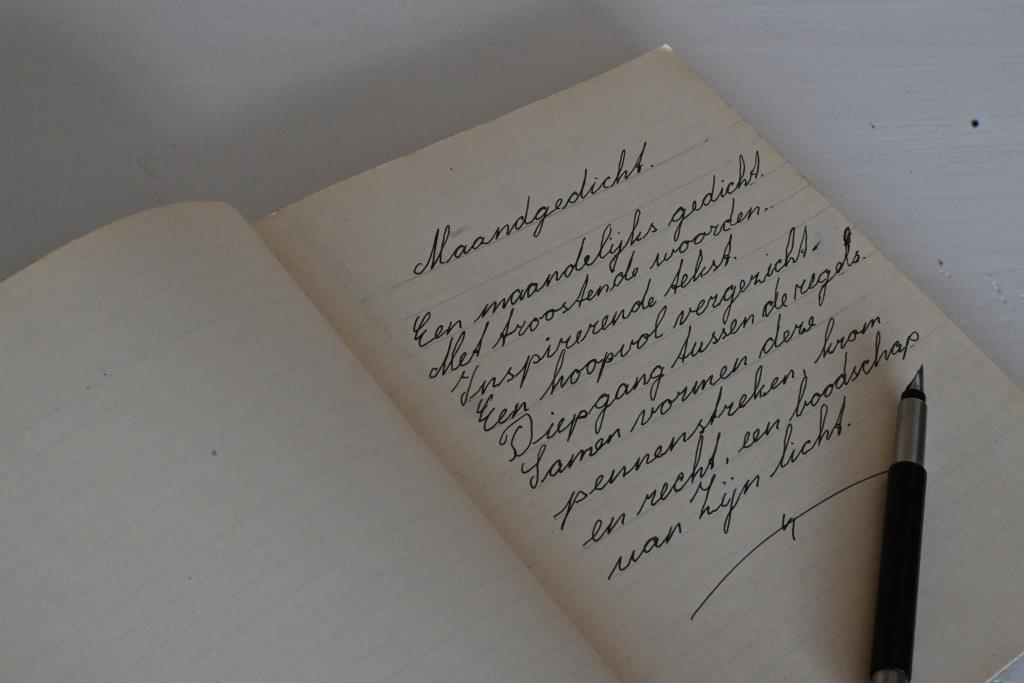 Maandgedicht.
Een maandelijks gedicht.
Met troostende woorden.
Inspirerende tekst.
Een hoopvol vergezicht.
Diepgang tussen de regels.
Samen vormen deze
pennenstreken, krom
en recht, een boodschap
van Zijn licht.